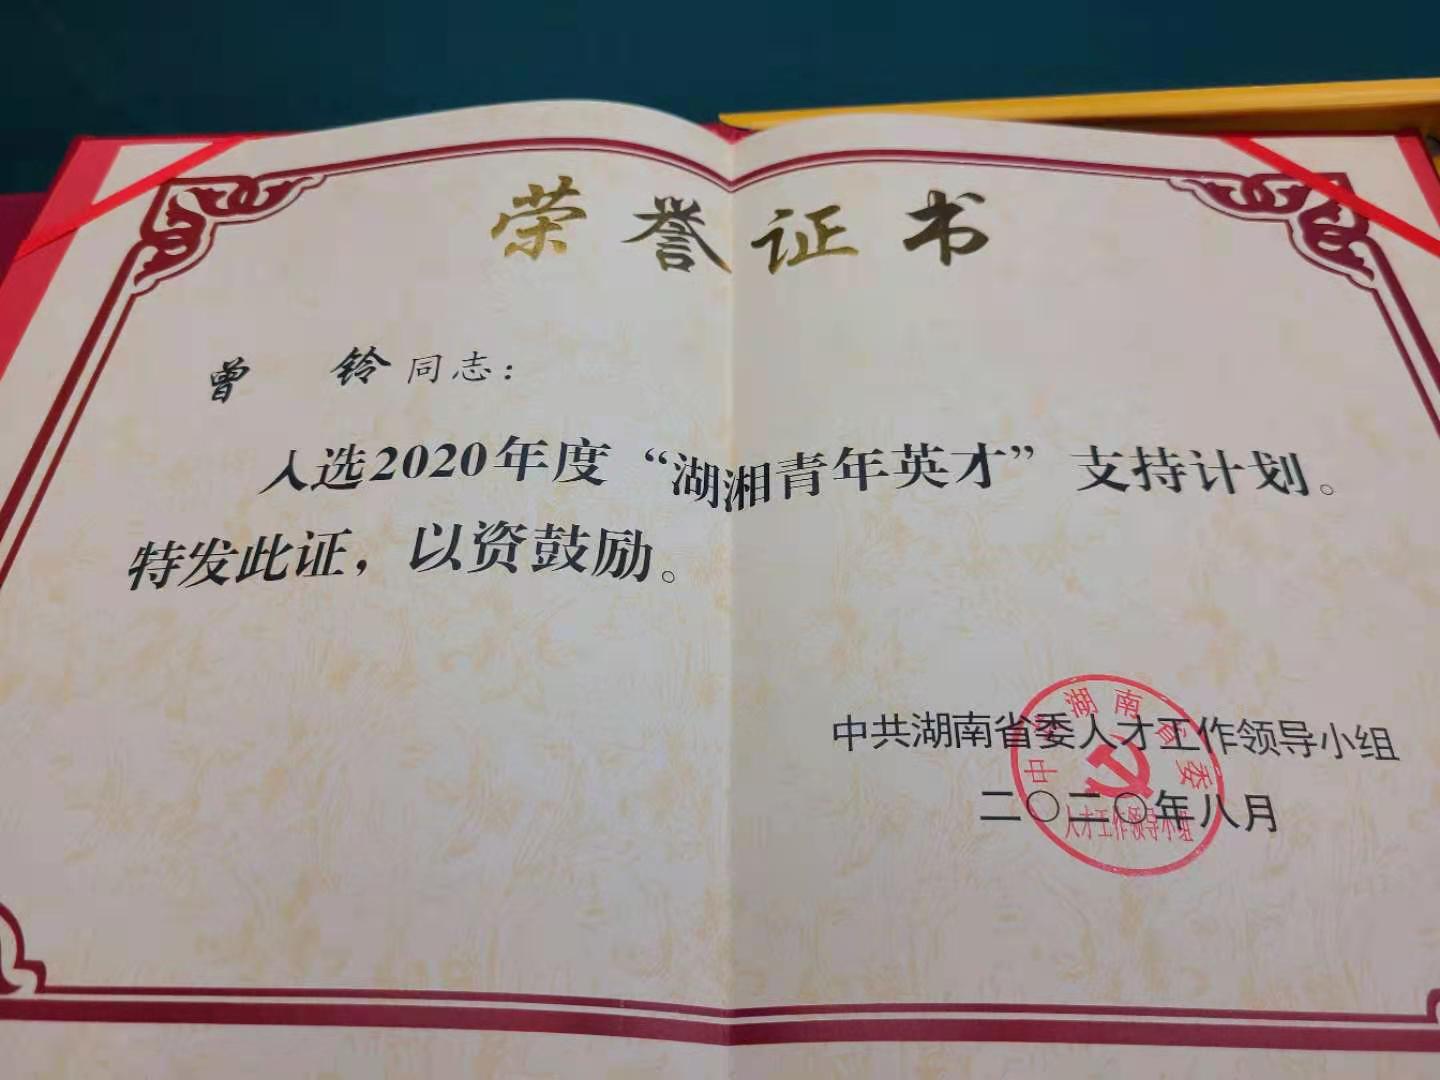 荣誉证书
曾 铃同志：
入选2020年度“湖湘青年英才”支持计划。
特发此证，以资鼓励。
中共湖南省委人才工作领导小组
二〇二〇年八月
中共湖南省委
人才工作领导小组